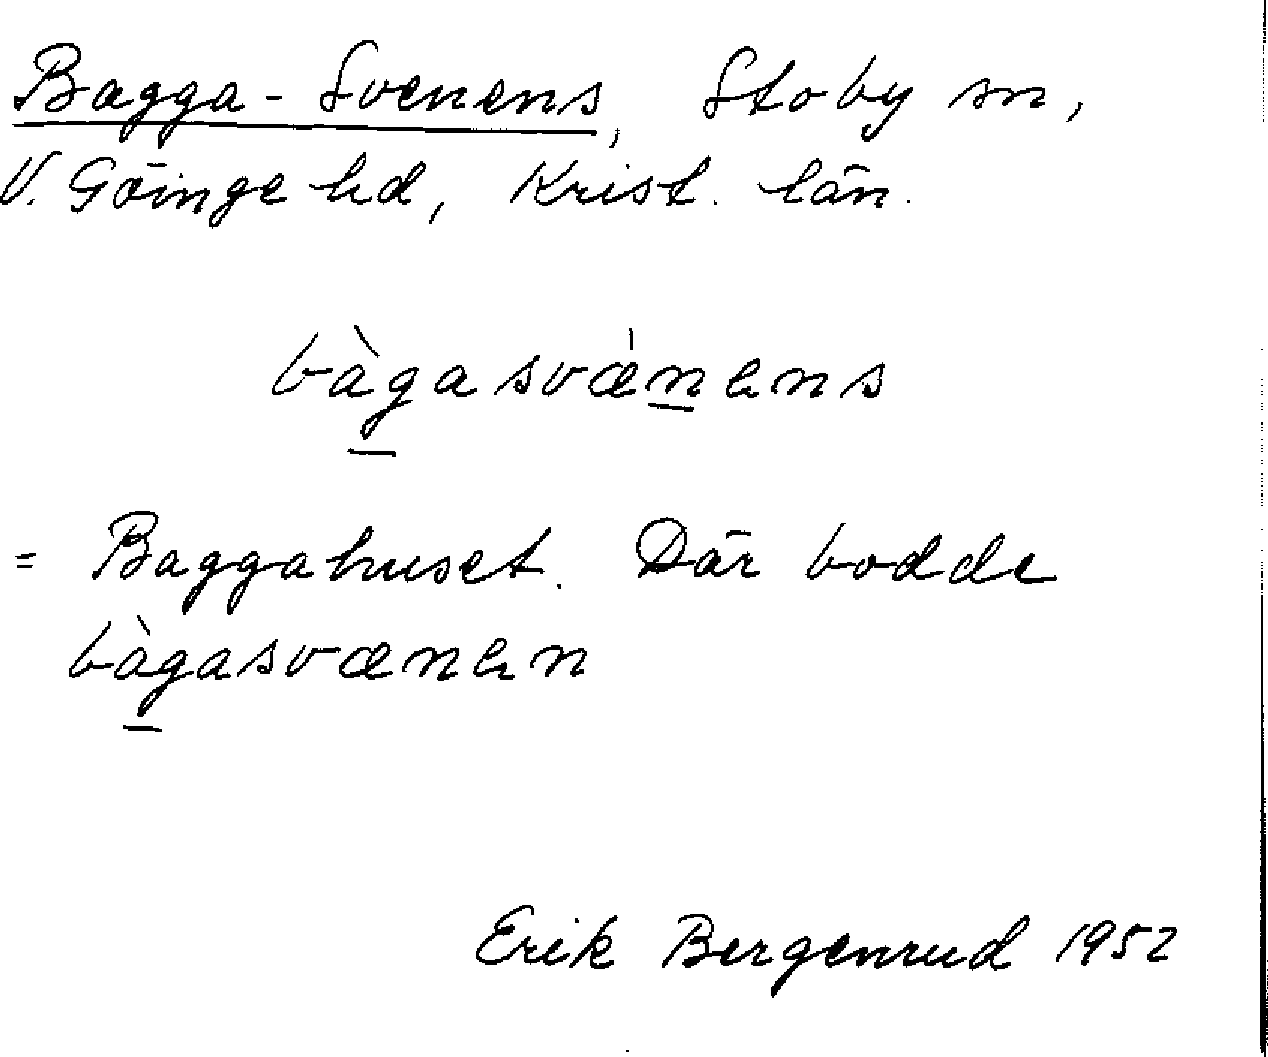 Bagga-Svenens, Stoby sn,
V. Göinge hd, Krist. län.
bàg̲asvæ̀n̲ens
= Baggahuset. Där bodde
bàg̲asvænen
Erik Bergenrud 1952